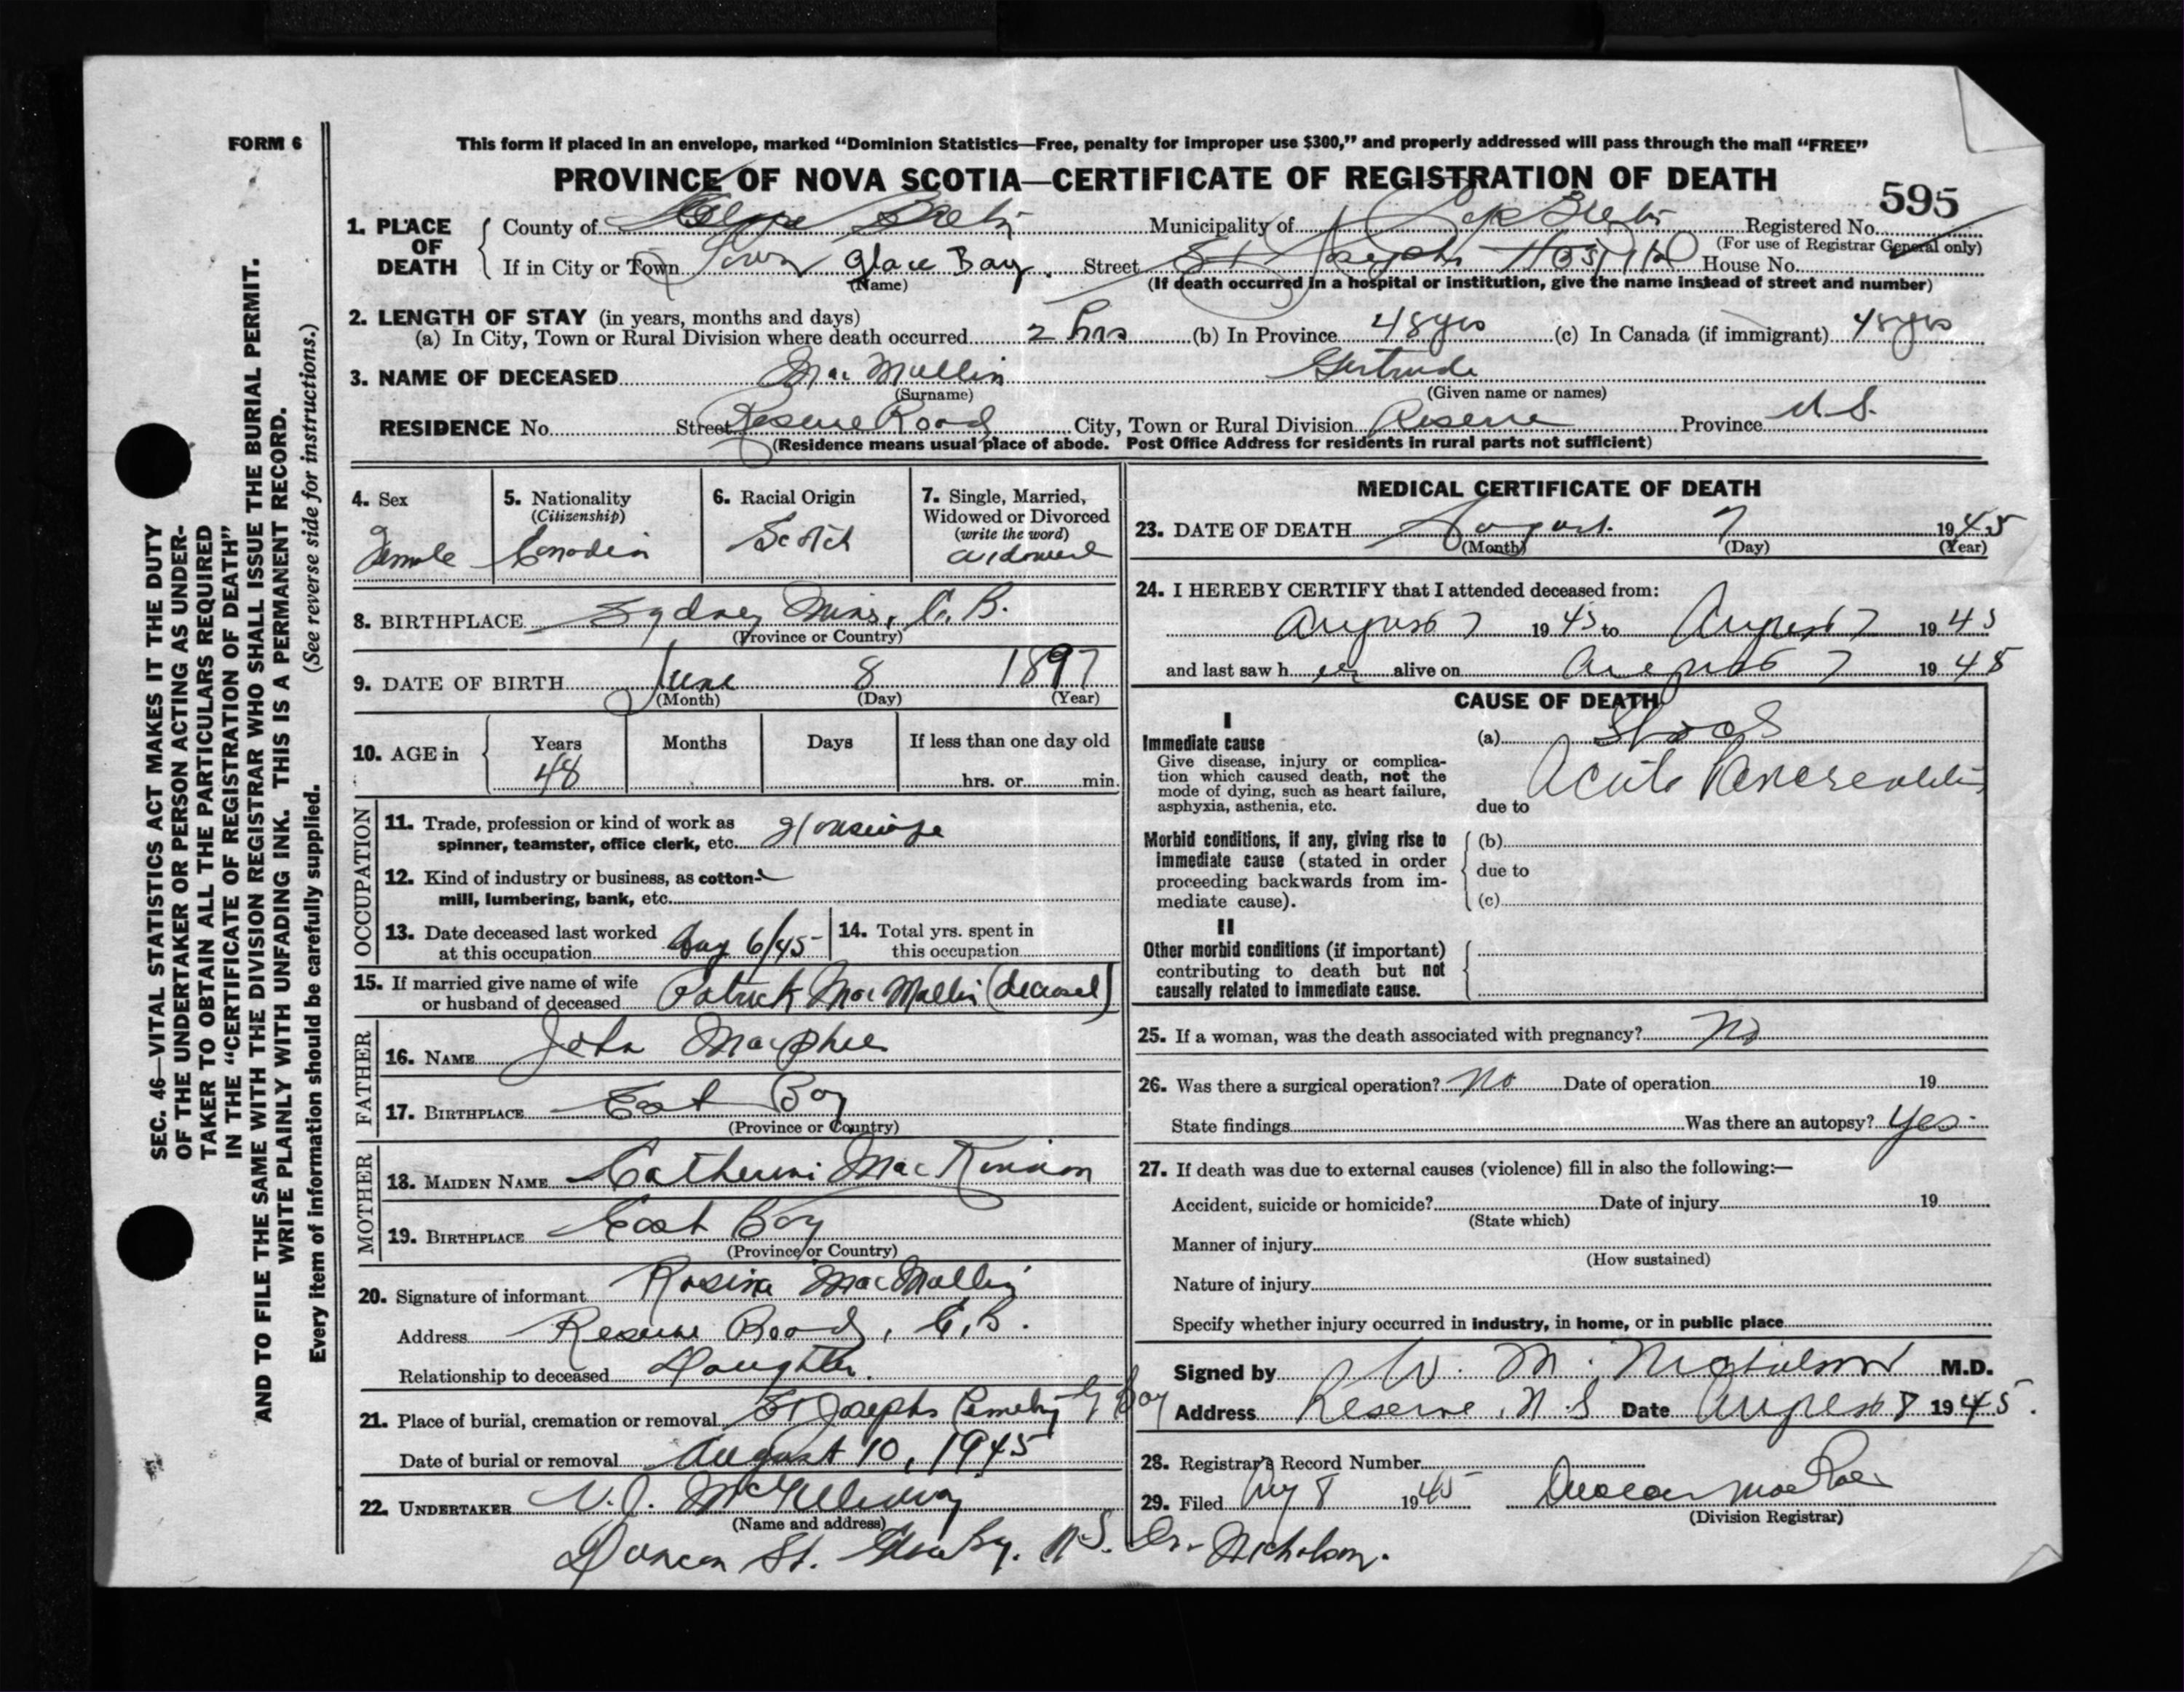 FORM 6
This form if placed in an envelope, marked “Dominion Statistics—Free, penalty for improper use $300,” and properly addressed will pass through the mail “FREE”
PROVINCE OF NOVA SCOTIA—CERTIFICATE OF REGISTRATION OF DEATH
595
1. PLACE OF DEATH
County of Cape Breton Municipality of Cape Breton Registered No.
(For use of Registrar General only)
If in City or Town Town Glace Bay. Street St Josephs Hospital House No.
(Name) (If death occurred in a hospital or institution, give the name instead of street and number)
2. LENGTH OF STAY (in years, months and days)
(a) In City, Town or Rural Division where death occurred 2 hrs (b) In Province 48 yrs (c) In Canada (if immigrant) 48 yrs
3. NAME OF DECEASED Mac Mullin Gertrude
(Surname) (Given name or names)
RESIDENCE No. Street Reserve Road City, Town or Rural Division Reserve Province N.S.
(Residence means usual place of abode. Post Office Address for residents in rural parts not sufficient)
4. Sex
Female
5. Nationality
(Citizenship)
Canadian
6. Racial Origin
Scotch
7. Single, Married,
Widowed or Divorced
(write the word)
Widowed
8. BIRTHPLACE Sydney Mines, C.B.
(Province or Country)
9. DATE OF BIRTH June 8 1897
(Month) (Day) (Year)
10. AGE in
Years Months Days If less than one day old
48
hrs. or min.
OCCUPATION
11. Trade, profession or kind of work as
spinner, teamster, office clerk, etc. Housewife
12. Kind of industry or business, as cotton-
mill, lumbering, bank, etc.
13. Date deceased last worked
at this occupation Aug 6/45
14. Total yrs. spent in
this occupation
15. If married give name of wife
or husband of deceased Patrick Mac Mullin (deceased)
FATHER
16. NAME John MacPhee
17. BIRTHPLACE East Bay
(Province or Country)
MOTHER
18. MAIDEN NAME Catherine Mac Kinnon
19. BIRTHPLACE East Bay
(Province or Country)
20. Signature of informant Rosina MacMullin
Address Reserve Road, C.B.
Relationship to deceased Daughter.
21. Place of burial, cremation or removal St Josephs Cemetery G Bay
Date of burial or removal August 10, 1945
22. UNDERTAKER V.J. McGillivray
(Name and address)
Duncan St. Glace Bay. N.S. Dr. Nicholson.
MEDICAL CERTIFICATE OF DEATH
23. DATE OF DEATH August 7 1945
(Month) (Day) (Year)
24. I HEREBY CERTIFY that I attended deceased from:
August 7 1945 to August 7 1945
and last saw her alive on August 7 1945
CAUSE OF DEATH
I
Immediate cause
Give disease, injury or complica-
tion which caused death, not the
mode of dying, such as heart failure,
asphyxia, asthenia, etc.
(a) Shock
due to Acute Pancreatitis
Morbid conditions, if any, giving rise to
immediate cause (stated in order
proceeding backwards from im-
mediate cause).
(b)
due to
(c)
II
Other morbid conditions (if important)
contributing to death but not
causally related to immediate cause.
25. If a woman, was the death associated with pregnancy? No
26. Was there a surgical operation? No Date of operation 19
State findings Was there an autopsy? Yes
27. If death was due to external causes (violence) fill in also the following:—
Accident, suicide or homicide? Date of injury 19
(State which)
Manner of injury
(How sustained)
Nature of injury
Specify whether injury occurred in industry, in home, or in public place
Signed by W. M. Nicholson M.D.
Address Reserve, N.S Date August 8 1945.
28. Registrar's Record Number
29. Filed Aug 8 1945 Duncan MacRae
(Division Registrar)
SEC. 46—VITAL STATISTICS ACT MAKES IT THE DUTY
OF THE UNDERTAKER OR PERSON ACTING AS UNDER-
TAKER TO OBTAIN ALL THE PARTICULARS REQUIRED
IN THE “CERTIFICATE OF REGISTRATION OF DEATH”
AND TO FILE THE SAME WITH THE DIVISION REGISTRAR WHO SHALL ISSUE THE BURIAL PERMIT.
WRITE PLAINLY WITH UNFADING INK. THIS IS A PERMANENT RECORD.
Every item of information should be carefully supplied. (See reverse side for instructions.)